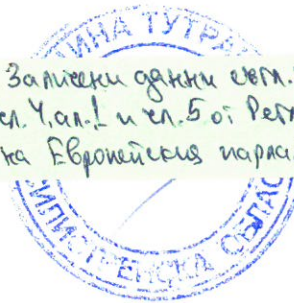 ЩИНА ТУТРА
Заличени данни съгл.
чл. 4, ал. 1 и чл. 5 от Регл
на Европейския парла
СИЛИСТРЕНСКА ОБЛАС